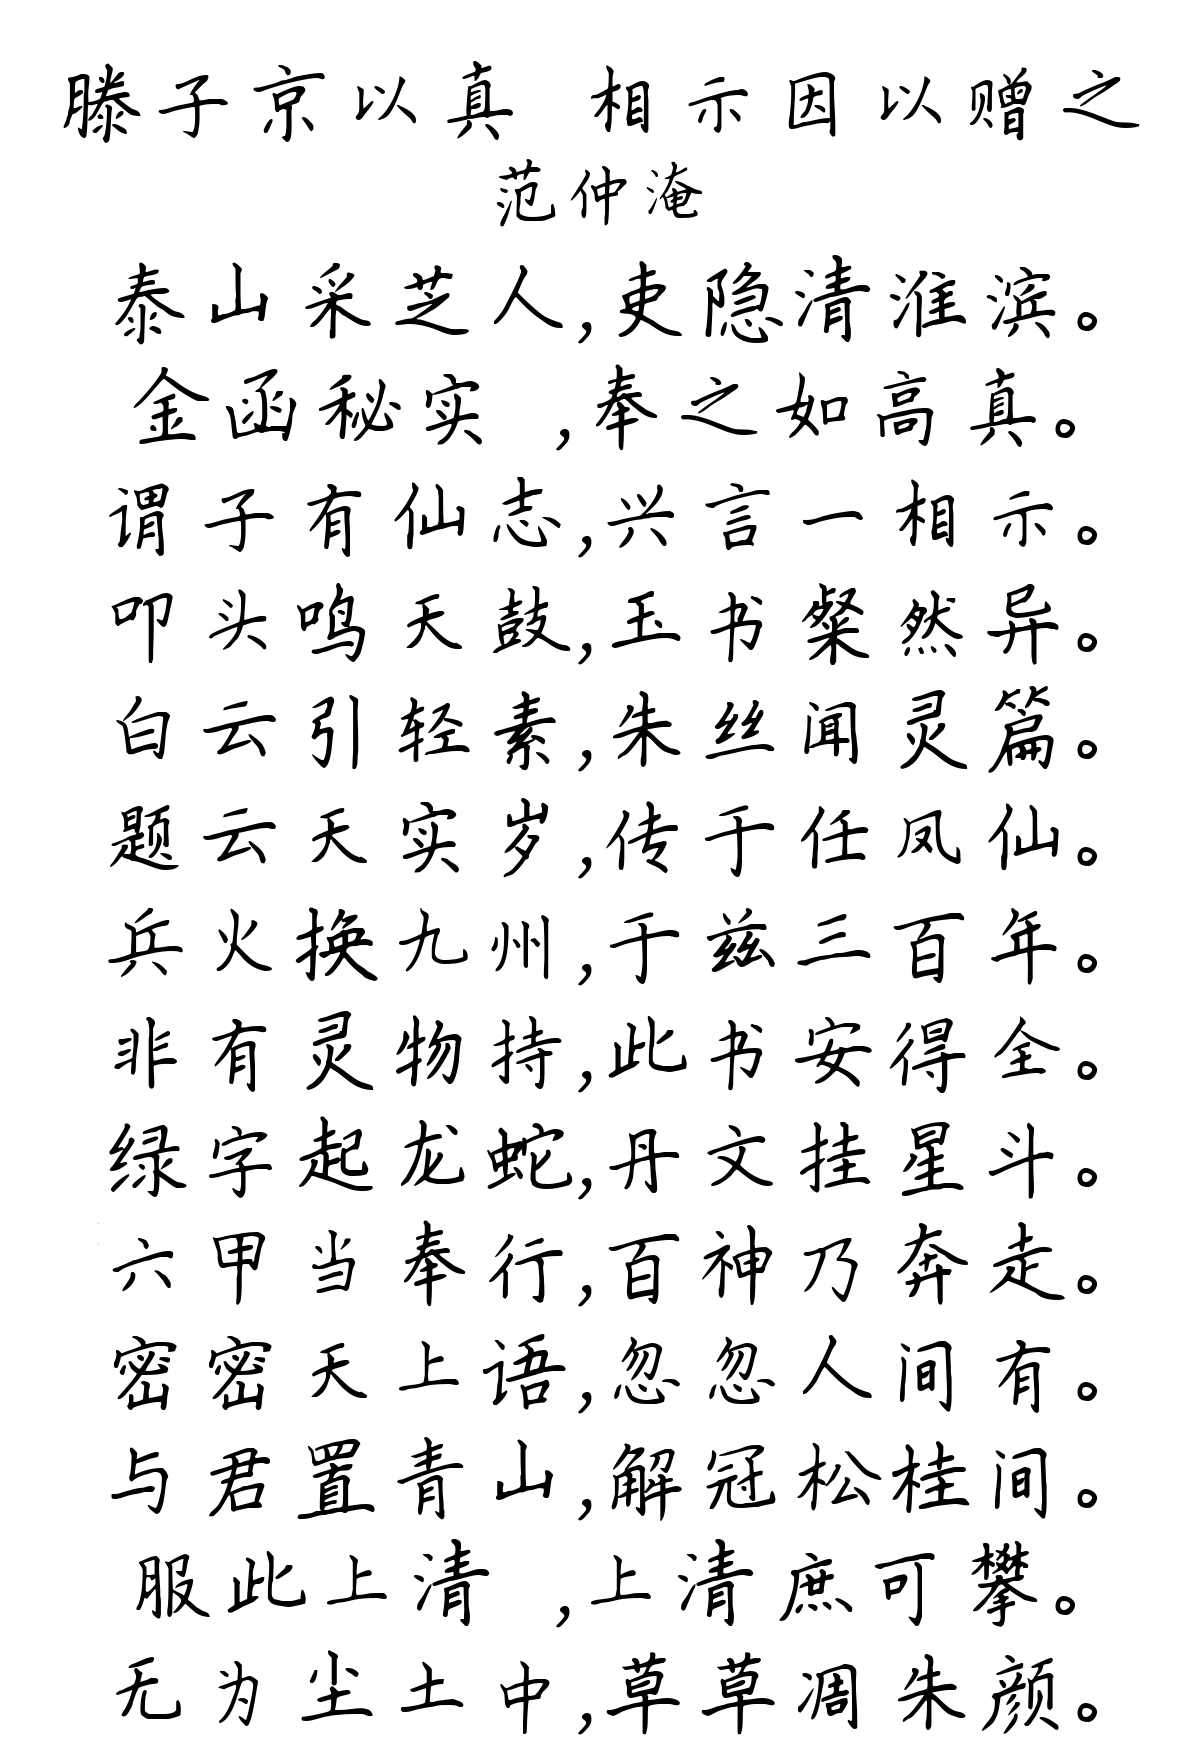 滕子京以真 相示因以赠之
范仲淹
泰山采芝人,吏隐清淮滨。
金函秘实 ,奉之如高真。
谓子有仙志,兴言一相示。
叩头鸣天鼓,玉书粲然异。
白云引轻素,朱丝闻灵篇。
题云天实岁,传于任凤仙。
兵火换九州,于兹三百年。
非有灵物持,此书安得全。
绿字起龙蛇,丹文挂星斗。
六甲当奉行,百神乃奔走。
密密天上语,忽忽人间有。
与君置青山,解冠松桂间。
服此上清 ,上清庶可攀。
无为尘土中,草草凋朱颜。